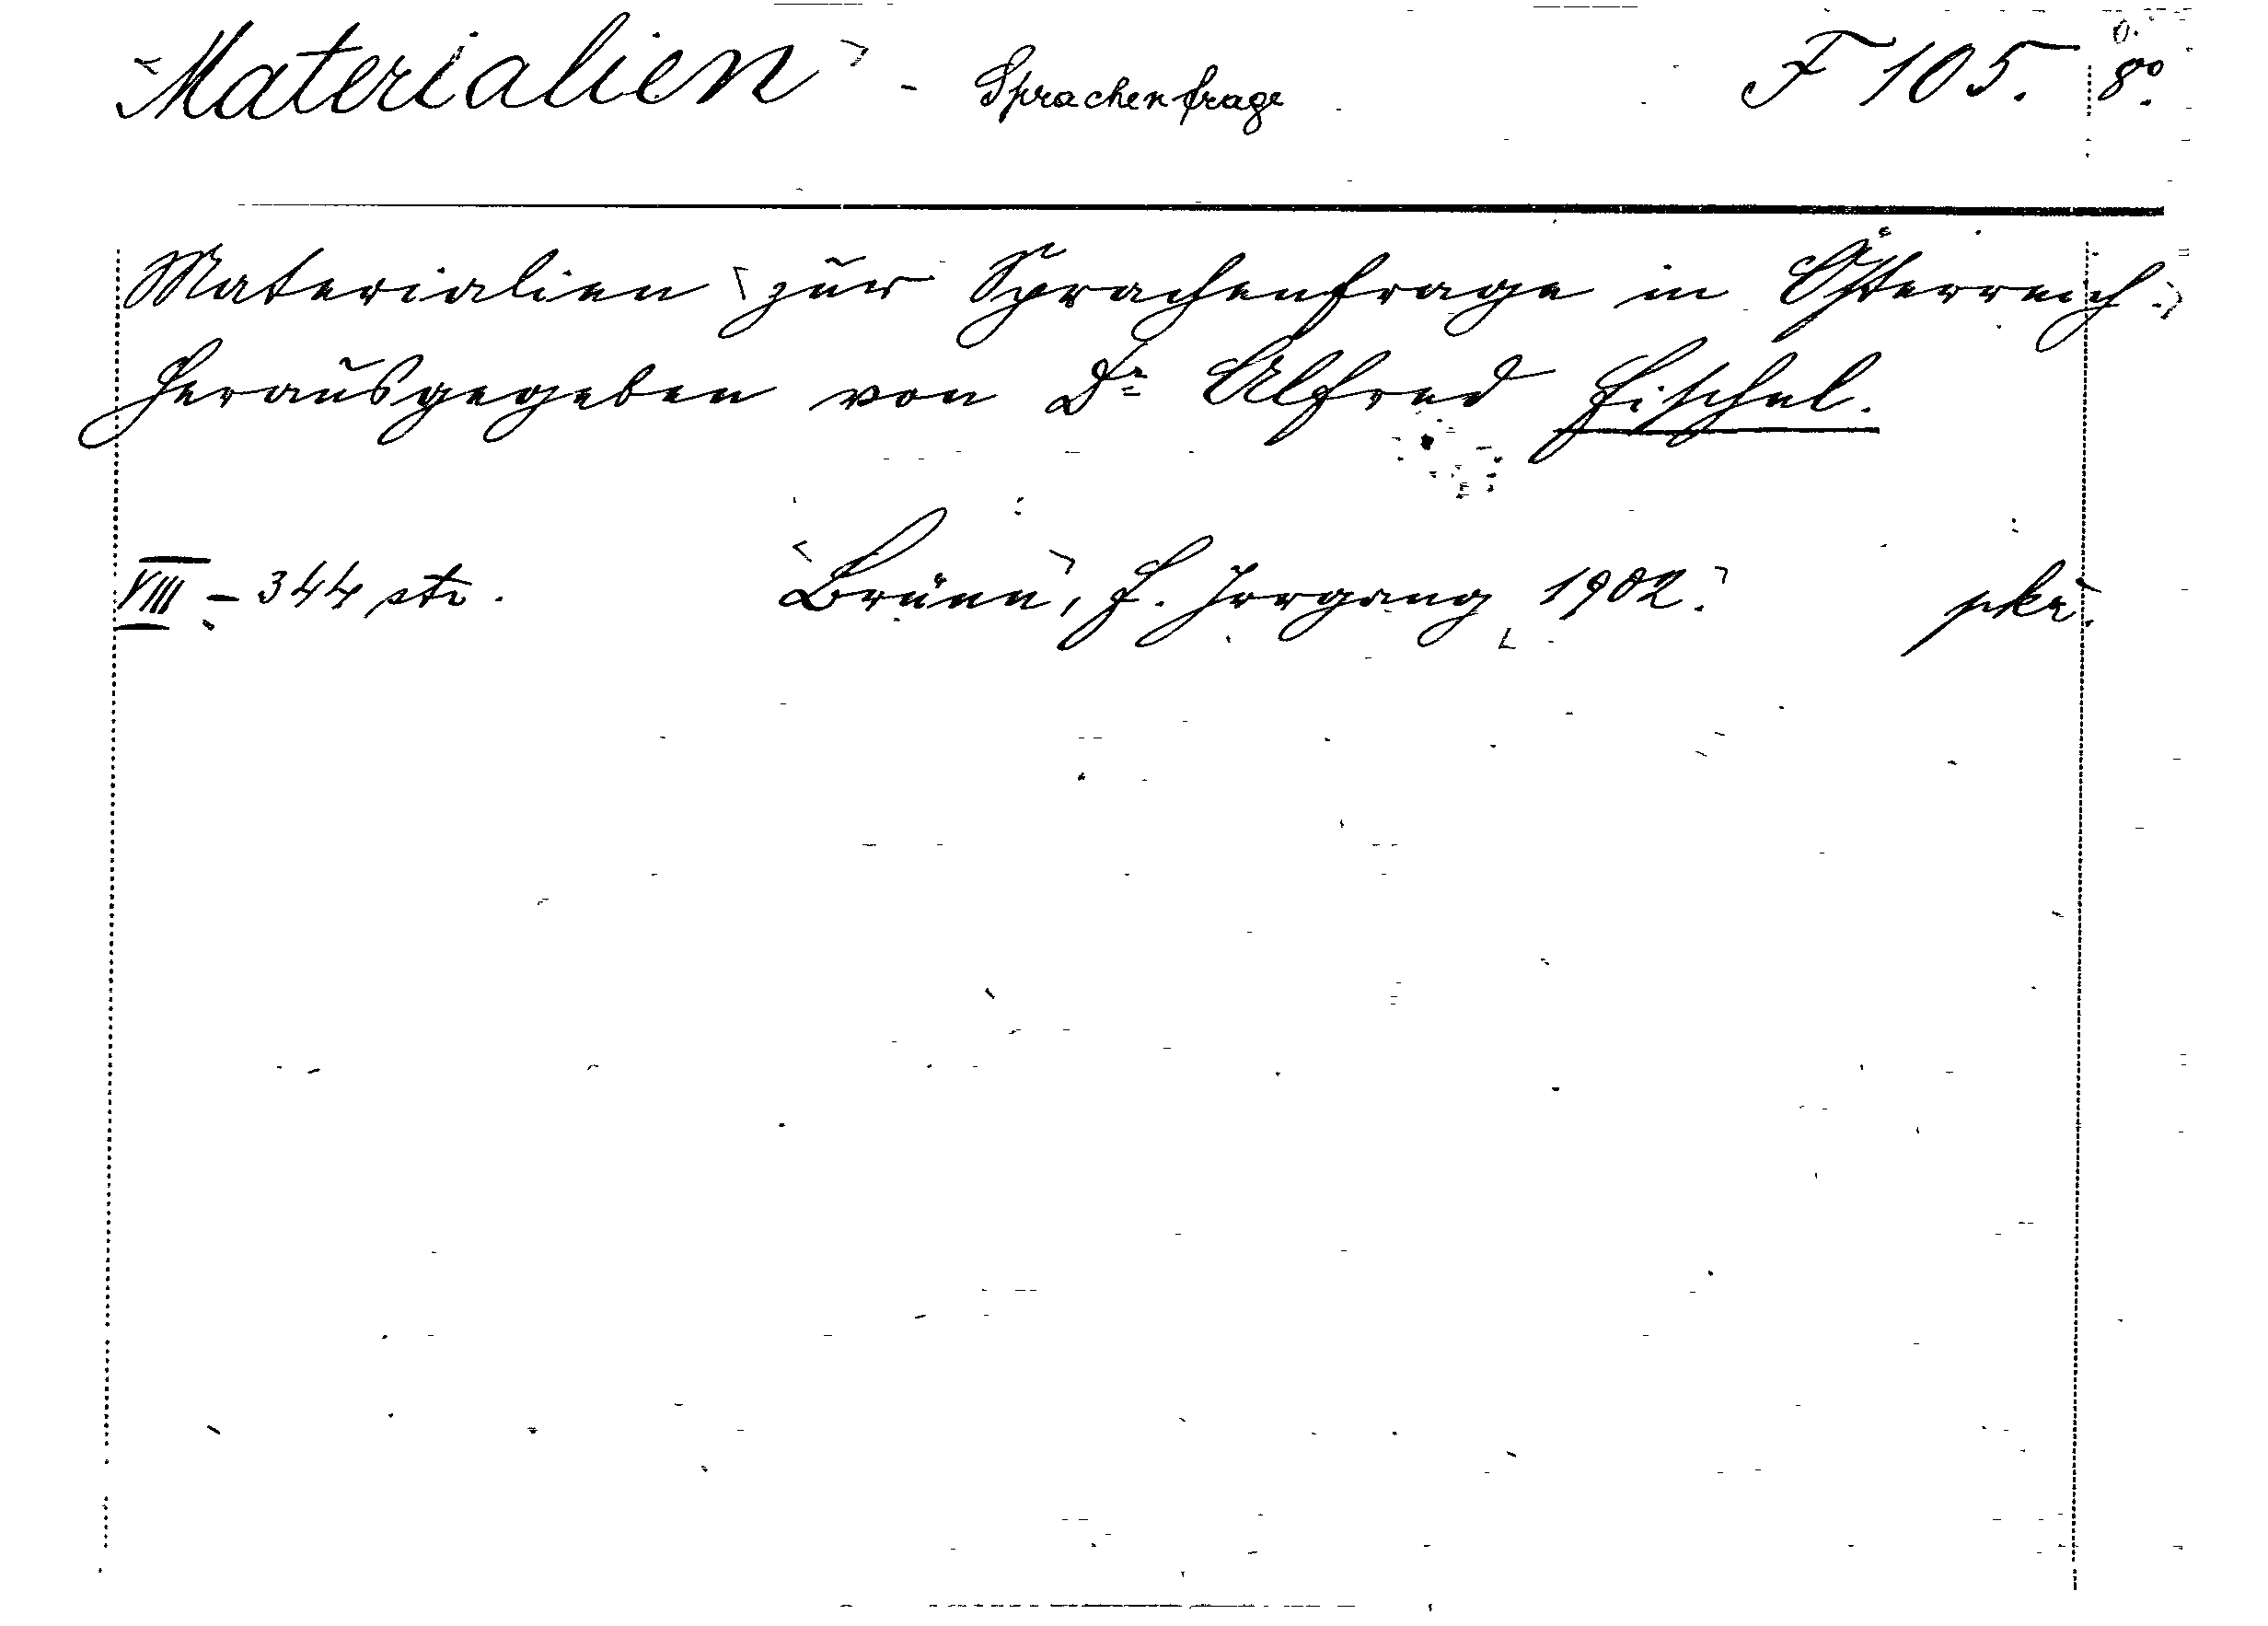 Materialien - Sprachenfrage F 105. 8°.
Materialien zur Sprachenfrage in Österreich.
Herausgegeben von Dr Alfred Fischel.
VIII - 344 str. Brünn, F. Irrgang 1902.